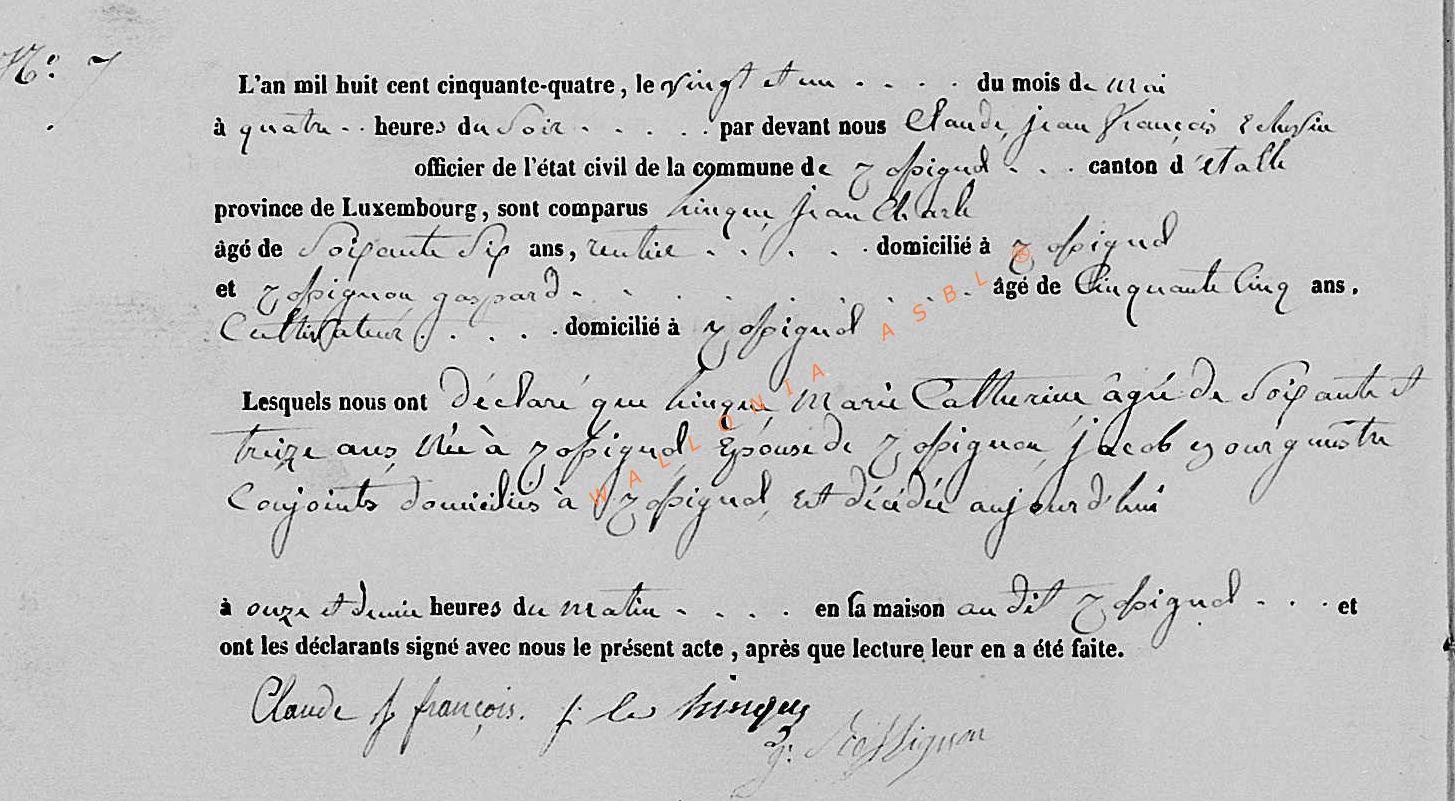 N°. 7
L'an mil huit cent cinquante-quatre, le vingt et un . . . . du mois de mai
à quatre . . heures du soir . . . . . par devant nous Claude, jean françois Echevin
officier de l'état civil de la commune de rossignol . . . canton d'étalle
province de Luxembourg, sont comparus hinque, jean Charle
âgé de soixante six ans, rentier . . . . . domicilié à rossignol
et rossignon gaspard . . . . . . . . . âgé de Cinquante Cinq ans.
Cultivateur . . . . . domicilié à rossignol
Lesquels nous ont déclaré que hinque, Marie Catherine âgée de soixante et
treize ans, Née à rossignol, Epouse de rossignon, jacob
Conjoints domiciliés à rossignol, Est décédée aujourd'hui
à onze et demie heures du matin . . . . en sa maison au dit rossignol . . . et
ont les déclarants signé avec nous le présent acte, après que lecture leur en a été faite.
Claude J françois. hinque
g. Rossignon
WALLONIA ASBL ®